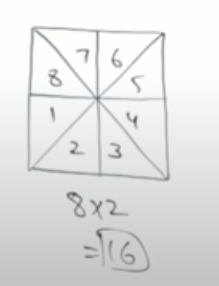 7 6
8 5
1 4
2 3
8×2
=16